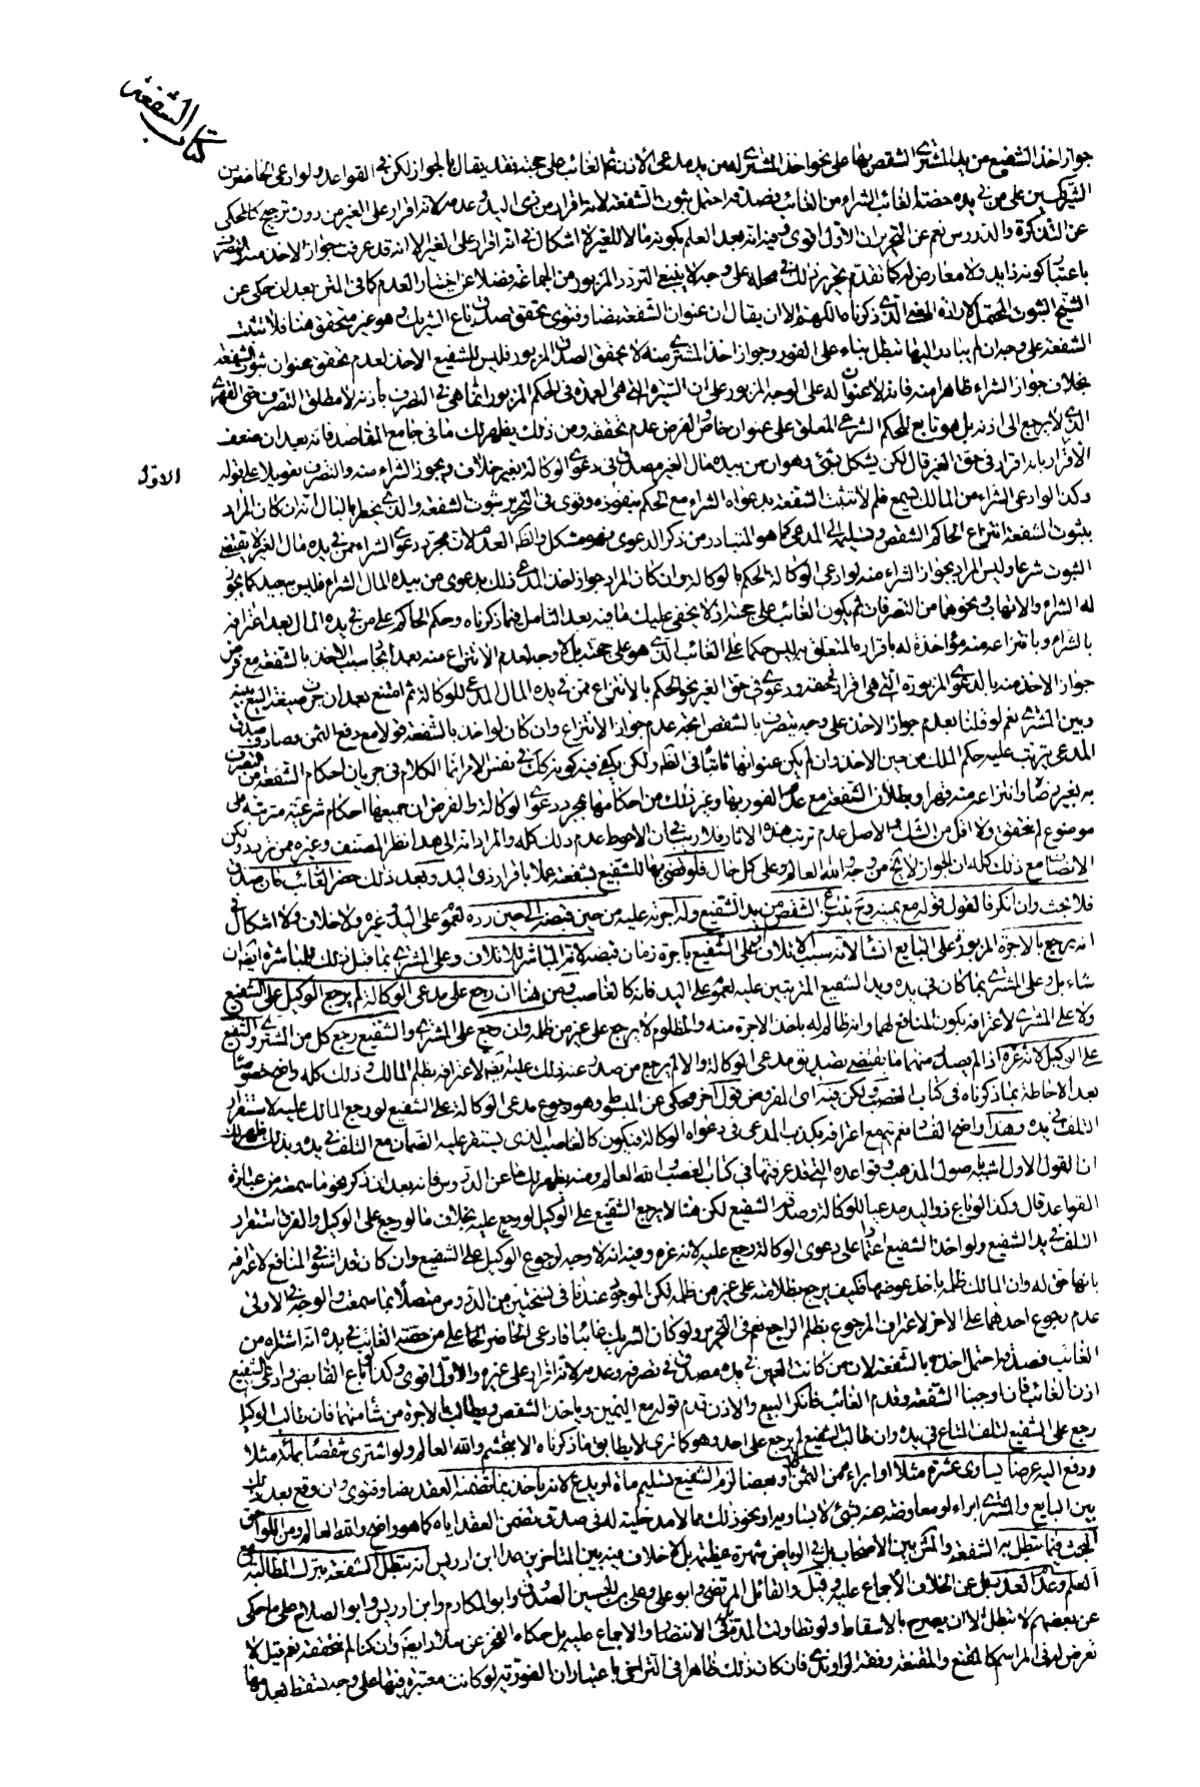 كتاب الشفعة
جواز اخذ الشفيع من يد المشتري الشقص بها على نحو اخذ المشتري له من يد مدعي الاذن ثم الغائب على حجته فقد يقال بالجواز لكن في القواعد ولو ادعى الحاضر من
الشريكين على من في يده حصة الغائب الشراء من الغائب فصدقه احتمل ثبوت الشفعة لانه اقرار من ذي اليد وعدمه لانه اقرار على الغير من دون ترجيح كالمحكي
عن التذكرة والدروس نعم عن التحرير ان الاول اقوى وفيه انه بعد العلم بكونه مالا للغير لا اشكال في انه اقرار على الغير الا انه قد عرفت جواز الاخذ منه والتصرف
باعتبار كونه ذا يد ولا معارض له كما تقدم تحرير ذلك في محله على وجه لا ينبغي التردد المزبور من الجماعة فضلا عن اختيار العدم كما في المتن بعد ان حكى عن
الشيخ الثبوت المحتمل لارادة المعنى الذي ذكرناه اللهم الا ان يقال ان عنوان الشفعة نصا وفتوى تحقق صدق باع الشريك وهو غير متحقق هنا فلا تثبت
الشفعة على وجه ان لم يبادر اليها تبطل بناء على الفور وجواز اخذ المشتري منه لا يحقق الصدق المزبور فليس للشفيع الاخذ لعدم تحقق عنوان ثبوت الشفعة
بخلاف جواز الشراء ظاهرا منه فانه لا عنوان له على الوجه المزبور على ان السيرة التي هي العمدة في الحكم المزبور انما هي في التصرف باذنه لا مطلق التصرف حتى القهري
الذي لا يرجع الى اذنه بل هو تابع للحكم الشرعي المعلق على عنوان خاص والفرض عدم تحققه ومن ذلك يظهر لك ما في جامع المقاصد فانه بعد ان ضعف
الاول
الاقرار بانه اقرار في حق الغير قال لكن يشكل بشيء وهو ان من بيده مال الغير مصدق في دعوى الوكالة بغير خلاف ويجوز الشراء منه والتصرف تعويلا على قوله
وكذا لو ادعى الشراء من المالك فيسمع فلم لا تثبت الشفعة بدعواه الشراء مع الحكم بنفوذه وقوى في التحرير ثبوت الشفعة والذي يخطر بالبال انه ان كان المراد
بثبوت الشفعة انتزاع الحاكم الشقص وتسليمه الى المدعي كما هو المتبادر من ذكر الدعوى فهو مشكل والظاهر العدم لان مجرد دعوى الشراء ممن في يده مال الغير لا يقتضي
الثبوت شرعا وليس المراد بجواز الشراء منه لو ادعى الوكالة الحكم بالوكالة وان كان المراد جواز اخذ المدعي ذلك بدعوى من بيده المال الشراء فليس ببعيد كما يجوز
له الشراء والاتهاب ونحوهما من التصرفات ثم يكون الغائب على حجته اذ لا يخفى عليك ما فيه بعد التامل فيما ذكرناه وحكم الحاكم على من في يده المال بعد اعترافه
بالشراء وبانتزاعه منه مؤاخذة له باقراره المتعلق به ليس حكما على الغائب الذي هو على حجته بل لا وجه لعدم الانتزاع منه بعد ايجاب سبب الاخذ بالشفعة مع فرض
جواز الاخذ منه بالدعوى المزبورة التي هي اقرار في حقه ودعوى في حق الغير نحو الحكم بالانتزاع ممن في يده المال المدعي للوكالة ثم امتنع بعد ان جرت صيغة البيع بينه
وبين المشتري نعم لو قلنا بعدم جواز الاخذ على وجه يتصرف بالشقص اتجه عدم جواز الانتزاع وان كان لو اخذ بالشفعة قولا مع دفع الثمن وصادف صدق
المدعي ترتب عليه حكم الملك من حين الاخذ وان لم يكن عنوانها ثابتا في الظاهر ولكن يكفي فيه كونه كذلك في نفس الامر انما الكلام في جريان احكام الشفعة من التصرف
به لغير رضا وانتزاعه منه قهرا وبطلان الشفعة مع عدم الفور بها وغير ذلك من احكامها بمجرد دعوى الوكالة والفرض ان جميعها احكام شرعية مترتبة على
موضوع لم يتحقق ولا اقل من الشك والاصل عدم ترتب هذه الاثار فلا ريب في ان الاحوط عدم ذلك كله والمراد انه الى هذا نظر المصنف وغيره ممن تردد لكن
الانصاف مع ذلك كله ان الجواز لا يخ من وجه والله العالم وعلى كل حال فلو قضى بها للشفيع بشفعته عملا باقرار ذي اليد وبعد ذلك حضر الغائب فان صدق
فلا بحث وان انكر فالقول قوله مع يمينه وح ينتزع الشقص من يد الشفيع وله اجرته عليه من حين قبضه الى حين رده لعموم على اليد وغيره ولا خلاف ولا اشكال في
انه يرجع بالاجرة المزبورة على البايع ان شاء لانه سبب الاتلاف او على الشفيع باجرة زمان قبضه لانه المباشر للاتلاف وعلى المشتري بما قبل ذلك للمباشرة ايضا ان
شاء بل وعلى المشتري بما كان في يده ويد الشفيع المترتبين عليه لعموم على اليد فانه كالغاصب ومن هنا ان رجع على مدعي الوكالة لم يرجع الوكيل على الشفيع
ولا على المشتري لاعترافه بكون المنافع لهما وانه ظالم له باخذ الاجرة منه والمظلوم لا يرجع على غير من ظلمه وان رجع على المشتري والشفيع رجع كل من المشتري والشفيع
على الوكيل لانه غره اذا لم يصل منهما ما يقتضي تصديق مدعي الوكالة والا لم يرجع من صدر عنه ذلك عليه ايضا لاعترافه بظلم المالك وذلك كله واضح خصوصا
بعد الاحاطة بما ذكرناه في كتاب الغصب ولكن فيه اي المفروض قول آخر محكي عن المبسوط وهو رجوع مدعي الوكالة على الشفيع لو رجع المالك عليه لاستقرار
التلف في يده وهذا واضح الفساد نعم يتم مع اعترافه بكذب المدعي في دعواه الوكالة فيكون كالغاصب الذي يستقر عليه الضمان مع التلف في يده وبذلك ظهر لك
ان القول الاول اشبه باصول المذهب وقواعده التي قد عرفتها في كتاب الغصب والله العالم ومنه يظهر لك ما عن الدروس فانه بعد ان ذكر نحو ما سمعته من عبارة
القواعد قال وكذا لو باع ذو اليد مدعيا للوكالة وصدقه الشفيع لكن هنا لا يرجع الشفيع على الوكيل لو رجع عليه بخلاف ما لو رجع على الوكيل والفرق استقرار
التلف في يد الشفيع ولو اخذ الشفيع اعتمادا على دعوى الوكالة رجع عليه لانه غره وفيه انه لا وجه لرجوع الوكيل على الشفيع وان كان قد استوفى المنافع لاعترافه
بانها حق له وان المالك ظلمه باخذ عوضها فكيف يرجع بظلامته على غير من ظلمه لكن الموجود عندنا في نسختين من الدروس متصلا بما سمعت والوجه في الاولى
عدم رجوع احدهما على الاخر لاعتراف المرجوع بظلم الراجع نعم في التحرير ولو كان الشريك غائبا فادعى الحاضر الحال على من حصة الغائب في يده انه اشتراه من
الغائب فصدقه احتمل اخذه بالشفعة لان من كانت العين في يده مصدق في تصرفه وعدمه لانه اقرار على غيره والاول اقوى وكذا لو باع القابض وادعى الشفيع
اذن الغائب فان اوجبنا الشفعة وقدم الغائب فانكر البيع والاذن قدم قوله مع اليمين وياخذ الشقص ويطالب بالاجرة من شاء منهما فان طالب الوكيل
رجع على الشفيع لتلف المتاع في يده وان طالب الشفيع لم يرجع على احد وهو كما ترى لا يطابق ما ذكرناه الا بتجشم والله العالم ولو اشترى شقصا بمائة مثلا
ودفع اليه عرضا يساوى عشرة مثلا او ابراءه من الثمن او بعضا لزم الشفيع تسليم مائة او يدع لانه ياخذ بما تضمنه العقد نصا وفتوى وان وقع بعد ذلك
بين البايع والمشتري ابراء او معاوضة عنه بشيء لا يساويه او نحو ذلك مما لا مدخلية له في صدق تضمن العقد اياه كما هو واضح والله العالم ومن لواحق
البحث فيما تبطل به الشفعة والمشهور بين الاصحاب بل في الرياض شهرة عظيمة بل لا خلاف فيه بين المتاخرين عدا ابن ادريس انه تبطل الشفعة بترك المطالبة مع
العلم وعدم العذر بل عن الخلاف الاجماع عليه وقيل والقائل المرتضى وابو علي وعلي بن الحسين الصدوق وابو المكارم وابن ادريس وابو الصلاح على ما حكى
عن بعضهم لا تبطل الا ان يصرح بالاسقاط ولو تطاولت المدة في الانتصار الاجماع عليه بل حكاه الفخر عن صاحب السرائر ايضا وان كنا لم نتحققه نعم قيل لا
تعرض له في المراسم كالمقنع والمقنعة وفقه الراوندي فان كان ذلك ظاهرا في التراخي باعتبار ان الفورية لو كانت معتبرة فيها على وجه تسقط بعدمها